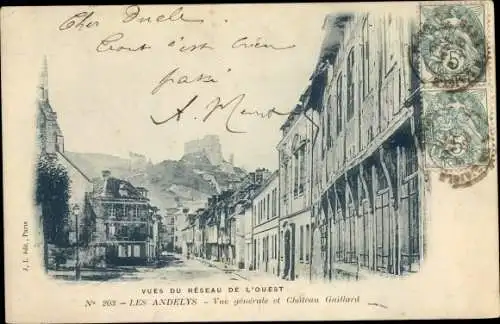 Cher Oncle
Tout s'est bien
passé
J. L. édit., Paris
5
5
VUES DU RÉSEAU DE L'OUEST
N° 203 - LES ANDELYS - Vue générale et Château Gaillard